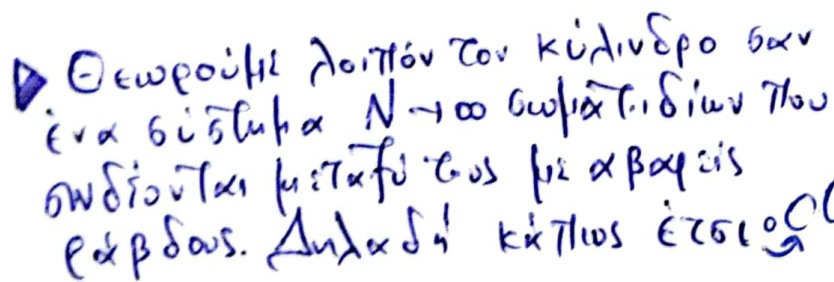 Θεωρούμε λοιπόν τον κύλινδρο σαν
ένα σύστημα N→∞ σωματιδίων που
συνδέονται μεταξύ τους με αβαρείς
ράβδους. Δηλαδή κάπως έτσι: